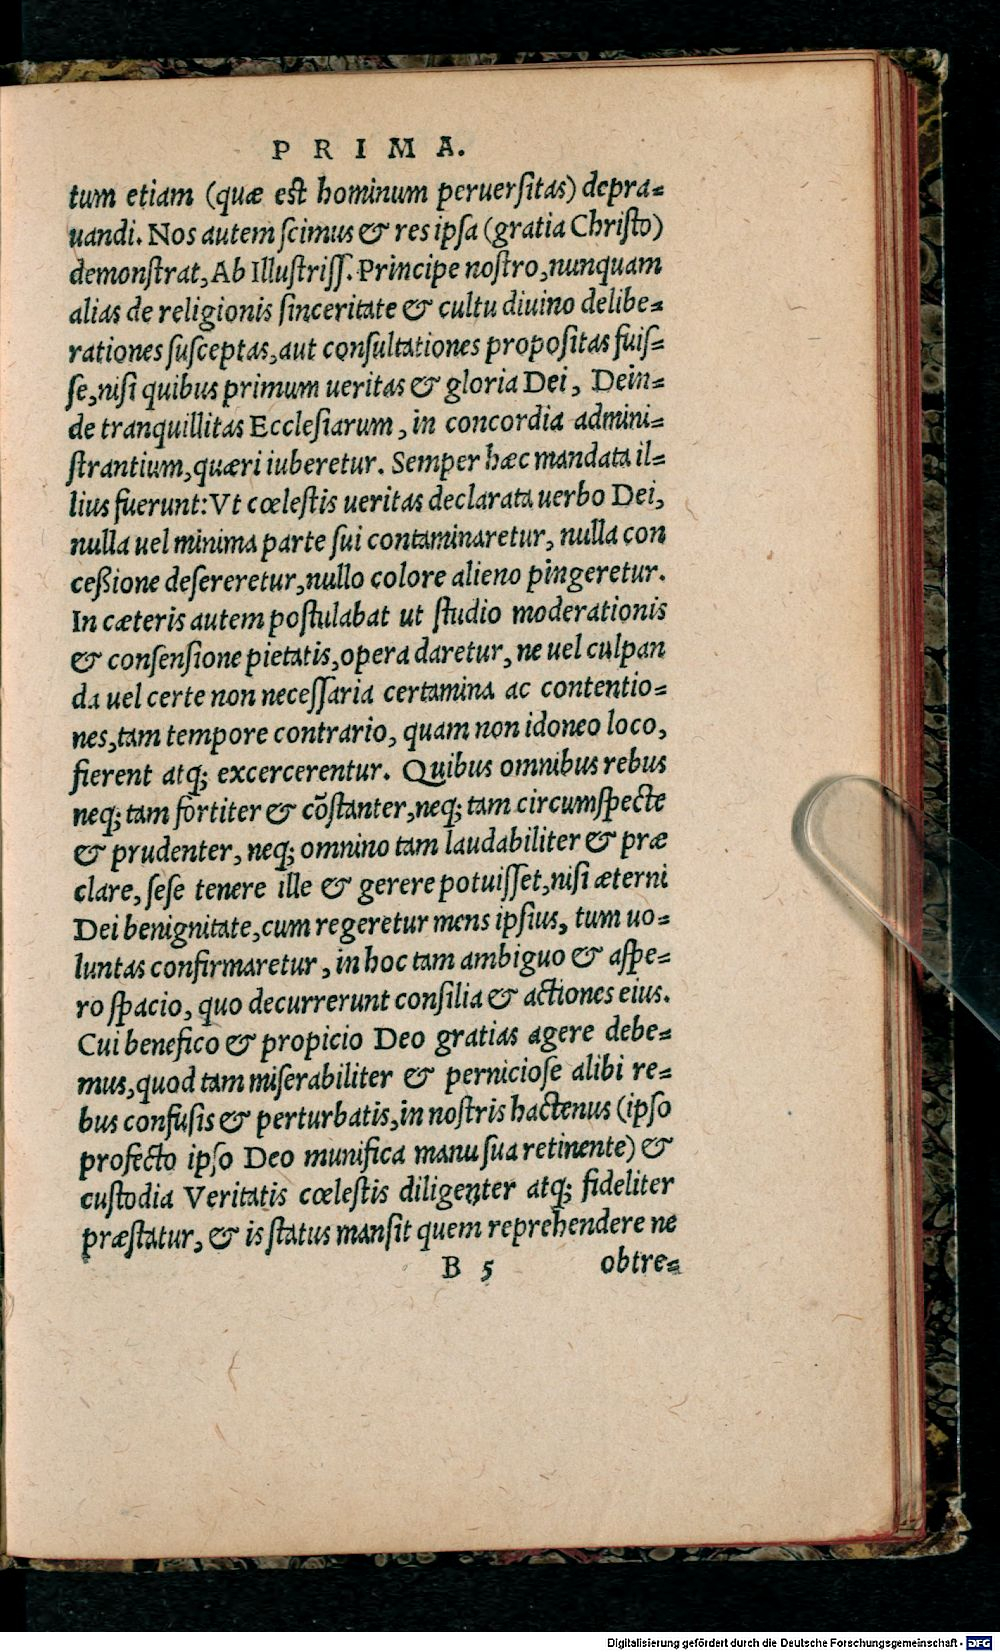 PRIMA.
tum etiam (quæ est hominum peruersitas) depra=
uandi. Nos autem scimus & res ipsa (gratia Christo)
demonstrat, Ab Illustriss. Principe nostro, nunquam
alias de religionis sinceritate & cultu diuino delibe=
rationes susceptas, aut consultationes propositas fuis=
se, nisi quibus primum ueritas & gloria Dei, Dein=
de tranquillitas Ecclesiarum, in concordia admini=
strantium, quæri iuberetur. Semper hæc mandata il=
lius fuerunt: Vt cœlestis ueritas declarata uerbo Dei,
nulla uel minima parte sui contaminaretur, nulla con
ceßione desereretur, nullo colore alieno pingeretur.
In cæteris autem postulabat ut studio moderationis
& consensione pietatis, opera daretur, ne uel culpan
da uel certe non necessaria certamina ac contentio=
nes, tam tempore contrario, quam non idoneo loco,
fierent atq; excercerentur. Quibus omnibus rebus
neq; tam fortiter & cõstanter, neq; tam circumspecte
& prudenter, neq; omnino tam laudabiliter & præ
clare, sese tenere ille & gerere potuisset, nisi æterni
Dei benignitate, cum regeretur mens ipsius, tum uo=
luntas confirmaretur, in hoc tam ambiguo & aspe=
ro spacio, quo decurrerunt consilia & actiones eius.
Cui benefico & propicio Deo gratias agere debe=
mus, quod tam miserabiliter & perniciose alibi re=
bus confusis & perturbatis, in nostris hactenus (ipso
profecto ipso Deo munifica manu sua retinente) &
custodia Veritatis cœlestis diligenter atq; fideliter
præstatur, & is status mansit quem reprehendere ne
B 5 obtre=
Digitalisierung gefördert durch die Deutsche Forschungsgemeinschaft - DFG